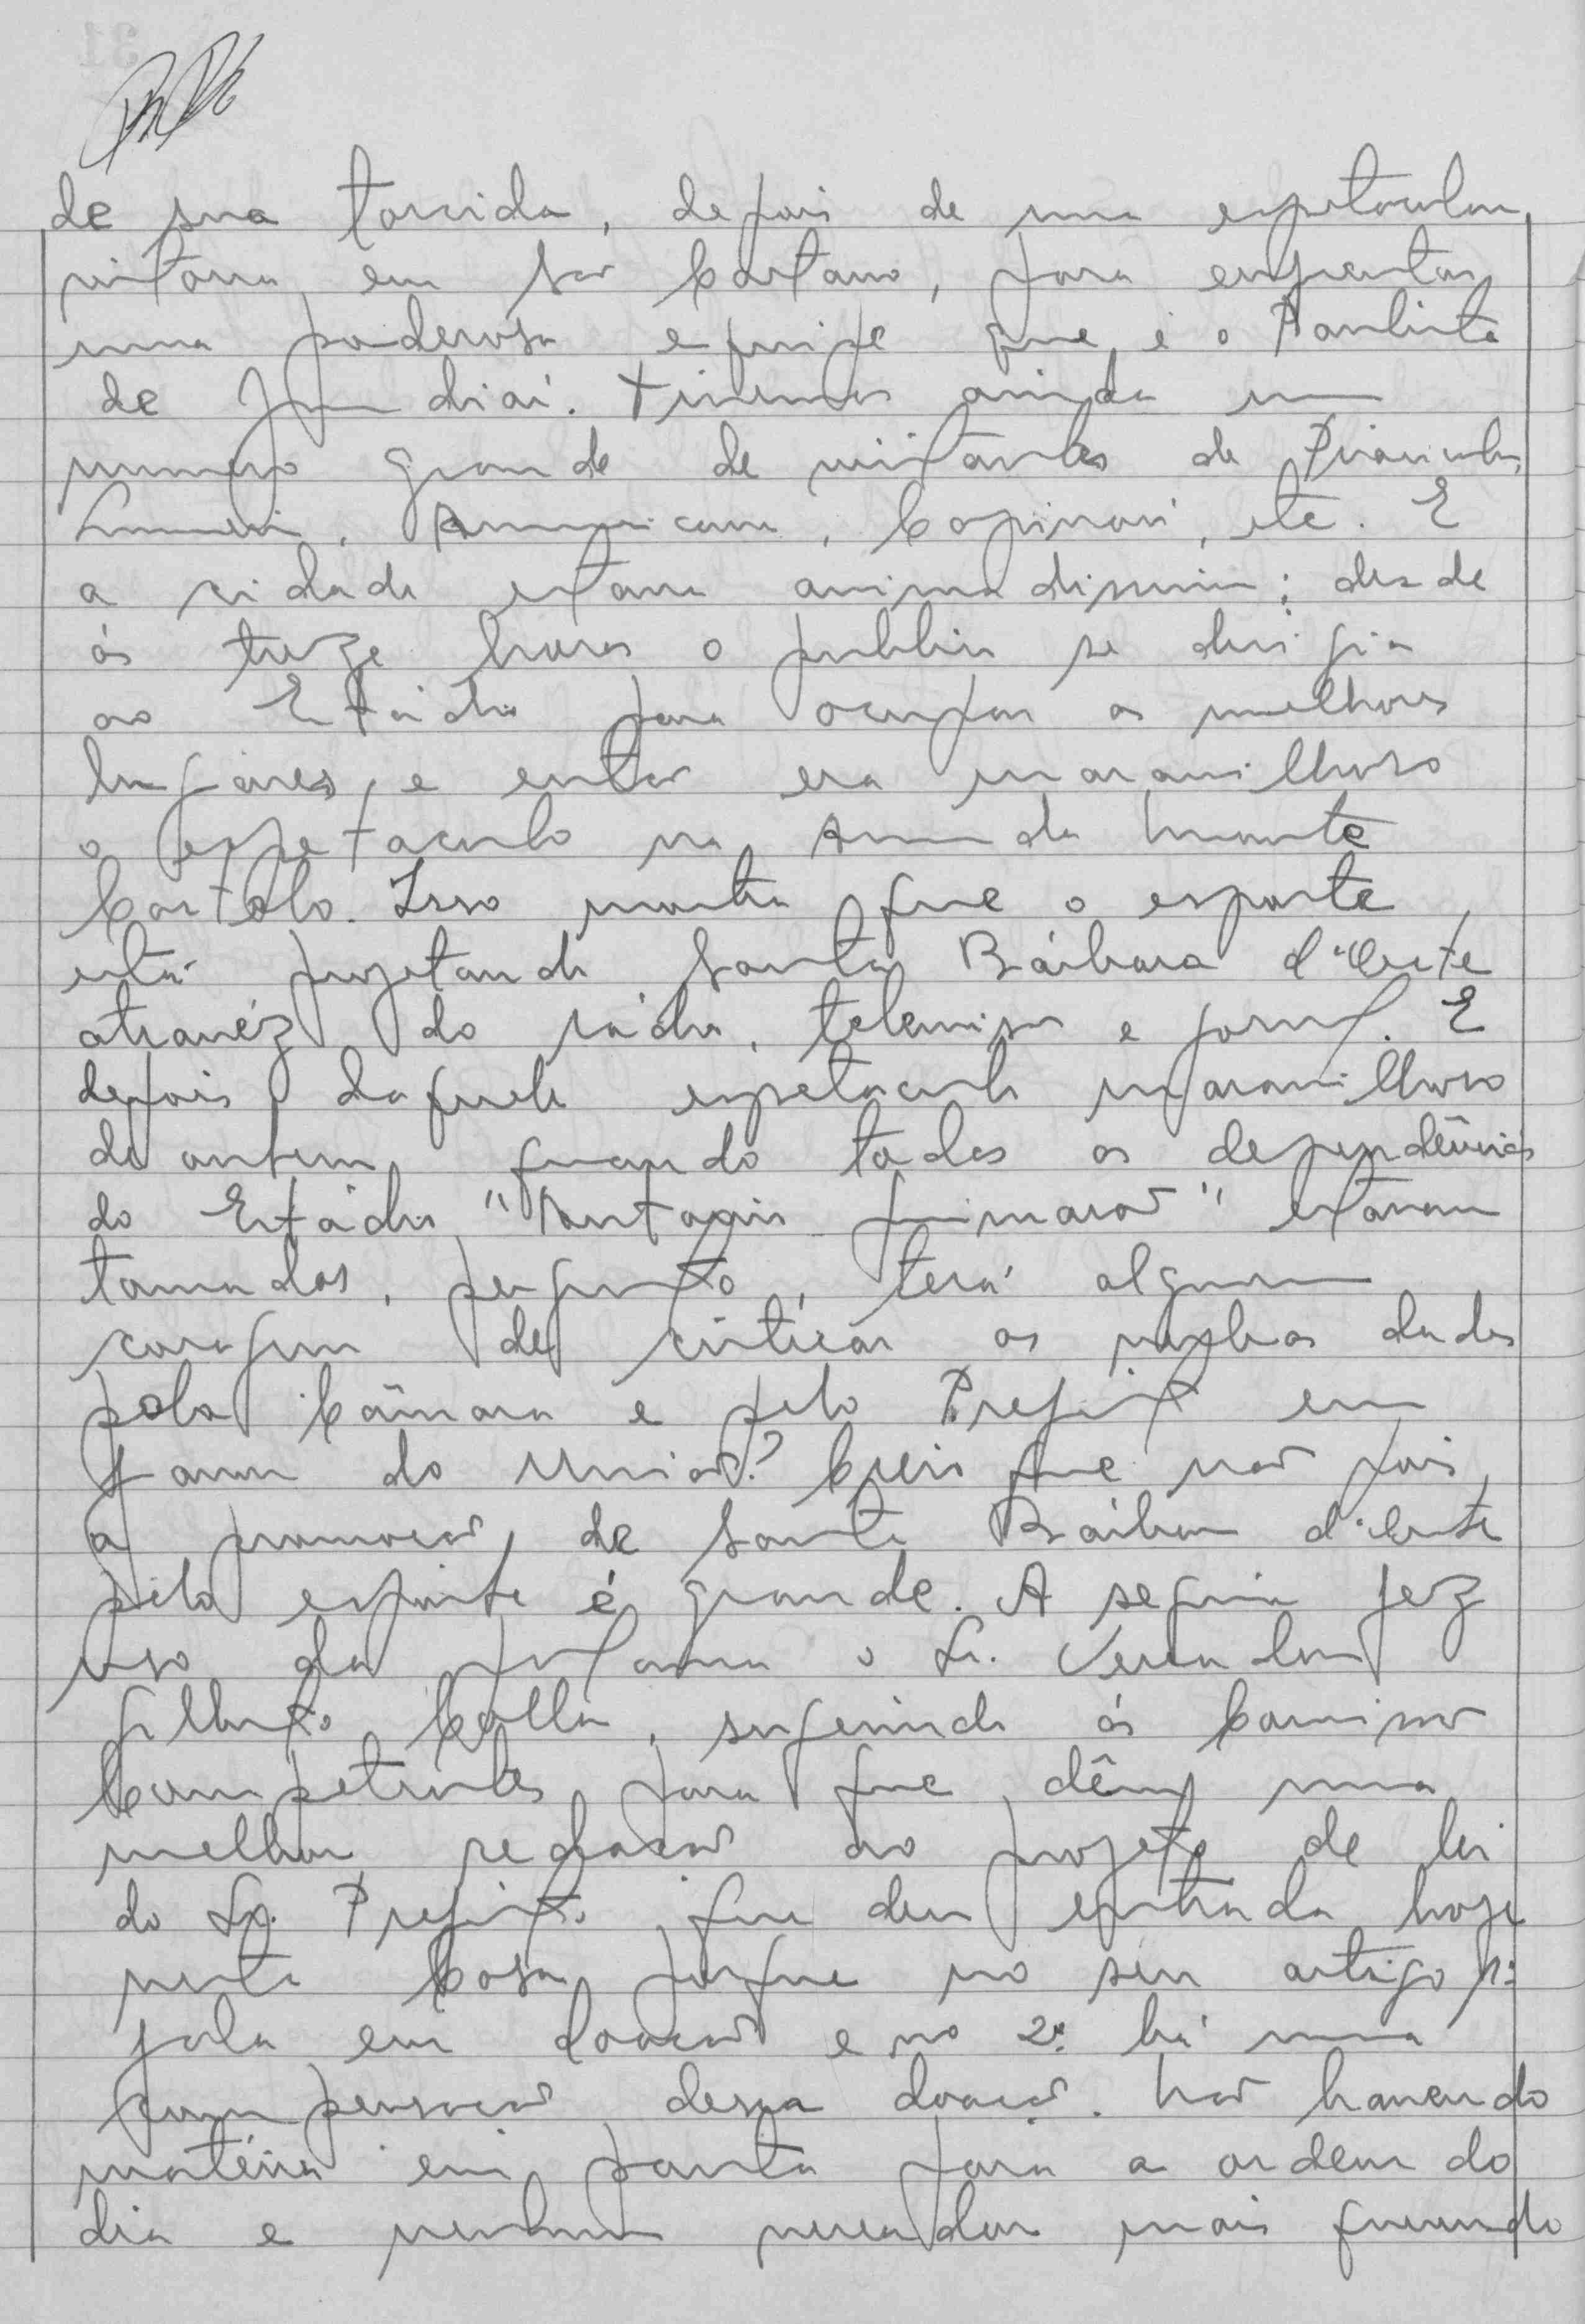 de sua torcida, depois de uma espetacular
vitoria em São Caetano, para enfrentar
uma poderosa equipe que é o Paulista
de Jundiaí. Tivemos ainda um
numero grande de visitantes de Piracicaba,
Limeira, Americana, Capivari, etc. E
a cidade estava animadissima; desde
ás treze horas o publico se dirigia
ao Estádio para ocupar os melhores
lugares, e então era maravilhoso
o espetaculo na Avenida Monte
Castelo. Isso mostra que o esporte
está projetando Santa Bárbara d'Oeste
atravéz do rádio, televisão e jornal. E
depois daquele espetaculo maravilhoso
de ontem, quando todas as dependências
do Estádio "Antonio Guimarães" estavam
tomadas, pergunto, terá alguem
coragem de criticar as verbas dadas
pela Câmara e pelo Prefeito em
favor do União? Creio que não pois,
a promoção de Santa Bárbara d'Oeste
pelo esporte é grande. A seguir fez
uso da palavra o Sr. Vereador
Gilberto Colla, sugerindo ás Comissões
Competentes para que dêem uma
melhor redação ao projeto de lei
do Sr. Prefeito que deu entrada hoje
nesta Casa, porque no seu artigo 1º
fala em doação e no 2º há uma
compensação dessa doação. Não havendo
matéria em pauta para a ordem do
dia e nenhum vereador mais querendo